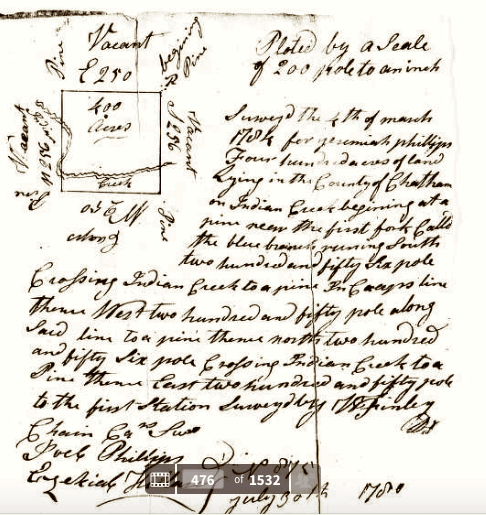 Vacant
E 250
begining
Pine
Pine
400
Acres
Creek
S 256
Vacant
Vacant
N 256
W 250
along
Pine
Ploted by a Scale
of 200 pole to an inch
Survey'd the 4th of march
1784 for Jeremiah phillips
Four hundred acres of land
Lying in the County of Chatham
on Indian Creek begining at a
pine near the first fork Calld
the blue branch runing South
two hundred and fifty Six pole
Crossing Indian Creek to a pine In line
thence West two hundred and fifty pole along
Said line to a pine thence north two hundred
and fifty Six pole Crossing Indian Creek to a
Pine thence East two hundred and fifty pole
to the first Station Surveyd by
Chain
Phillips
Ezekiah
July 30th 1780
476 of 1532